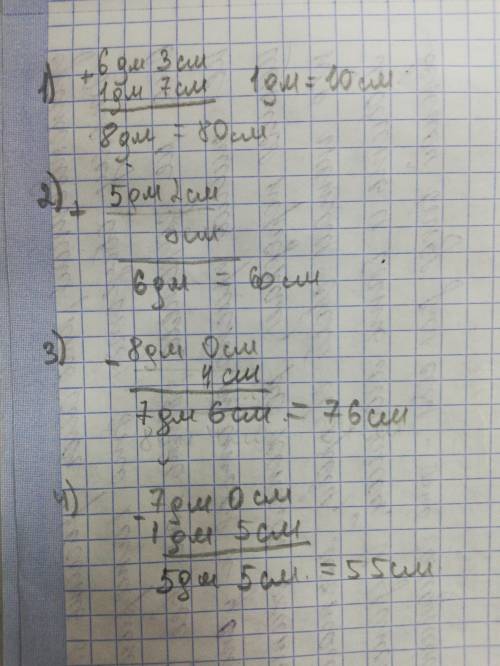 1) + 6 дм 3 см
1 дм 7 см 1 дм = 10 см
8 дм = 80 см
2) + 5 дм 2 см
см
6 дм = 60 см
3) - 8 дм 0 см
4 см
7 дм 6 см = 76 см
4) - 7 дм 0 см
1 дм 5 см
5 дм 5 см = 55 см